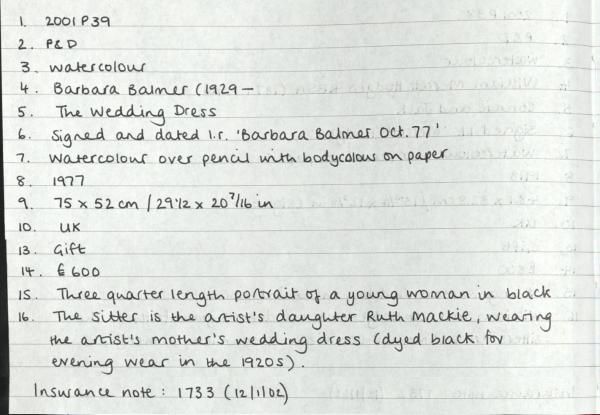 1. 2001 P39
2. P&D
3. watercolour
4. Barbara Balmer (1929 –
5. The Wedding Dress
6. Signed and dated l.r. 'Barbara Balmer Oct. 77'
7. Watercolour over pencil with bodycolour on paper
8. 1977
9. 75 x 52 cm / 29 1/2 x 20 7/16 in
10. UK
13. Gift
14. £600
15. Three quarter length portrait of a young woman in black
16. The sitter is the artist's daughter Ruth Mackie, wearing
the artist's mother's wedding dress (dyed black for
evening wear in the 1920s).
Insurance note: 1733 (12/1/02)